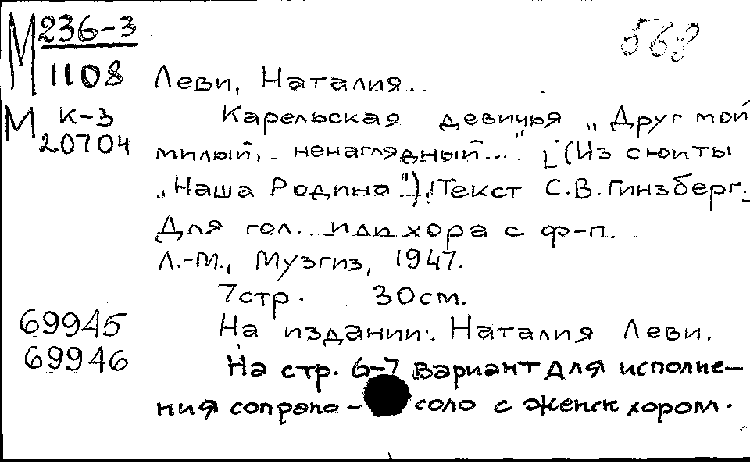 М 236-3
1108
568
Леви, Наталия..
М К-3
20704
Карельская девичья „Друг мой
милый, ненаглядный..." [(Из сюиты
„Наша Родина")]. Текст С.В. Гинзберг.
Для гол. или хора с ф-п.
Л.-М., Музгиз, 1947.
7стр. 30см.
69945
69946
На издании: Наталия Леви.
На стр. 6-7 вариант для исполне-
ния сопрано- соло с женск хором.